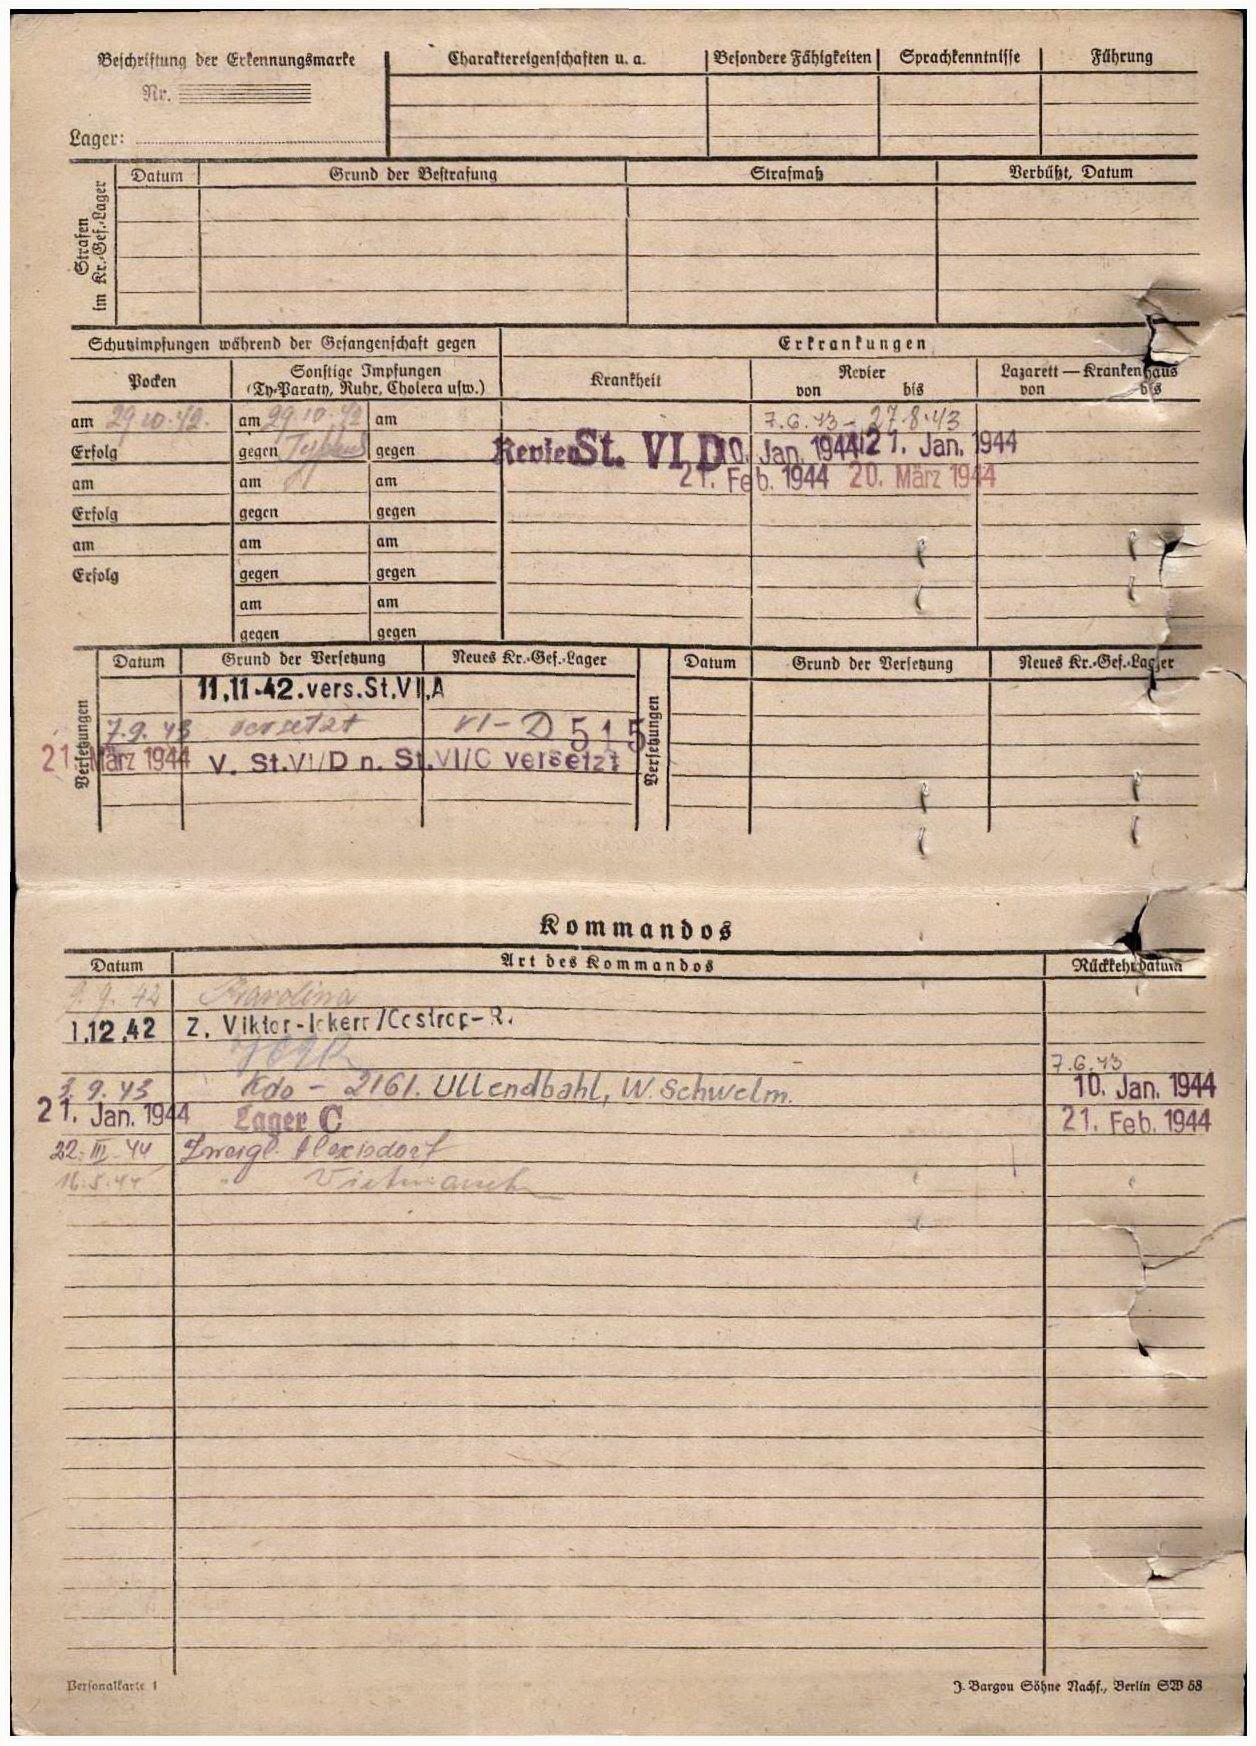 Beschriftung der Erkennungsmarke
Nr.
Lager:
Charaktereigenschaften u. a.
Besondere Fähigkeiten
Sprachkenntnisse
Führung
Strafen
im Kr.-Gef.-Lager
Datum
Grund der Bestrafung
Strafmaß
Verbüßt, Datum
Schutzimpfungen während der Gefangenschaft gegen
Erkrankungen
Pocken
Sonstige Impfungen
(Ty-Paraty, Ruhr, Cholera usw.)
Krankheit
Revier
von bis
Lazarett — Krankenhaus
von bis
am 29.10.42. am 29.10.42 am 7.6.43 - 27.8.43
Erfolg gegen gegen Revier St. VI D 10. Jan. 1944 21. Jan. 1944
am am am 21. Feb. 1944 20. März 1944
Erfolg gegen gegen
am am am
Erfolg gegen gegen
am am
gegen gegen
Versetzungen
Datum Grund der Versetzung Neues Kr.-Gef.-Lager
11.11.42. vers. St. VI, A
7.9.43 versetzt VI - D 515
21. März 1944 V. St. VI/D n. St. VI/C versetzt
Versetzungen
Datum Grund der Versetzung Neues Kr.-Gef.-Lager
Kommandos
Datum Art des Kommandos Rückkehrdatum
9.9.42 Karolina
1.12.42 Z. Viktor-Ickern/Castrop-R.
7.6.43
9.43 Kdo - 2161. Ullendbahl, W. Schwelm. 10. Jan. 1944
21. Jan. 1944 Lager C 21. Feb. 1944
22. III. 44 Zweigl. Alexisdorf
16.5.44 "
Personalkarte 1
J. Bargou Söhne Nachf., Berlin SW 68